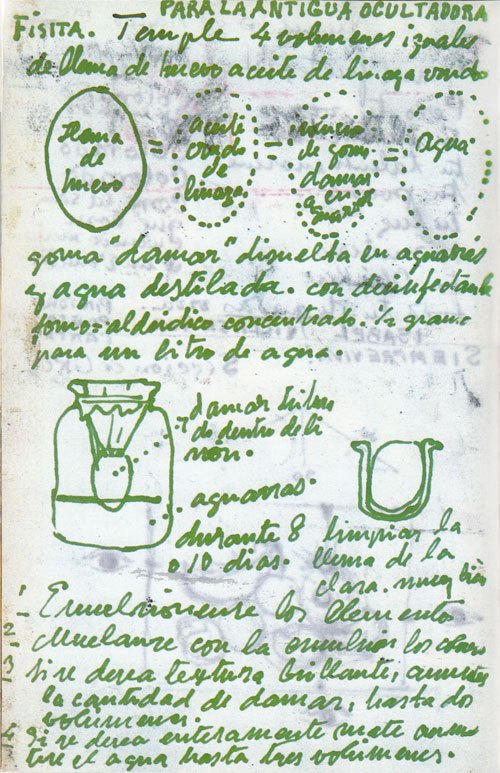 PARA LA ANTIGUA OCULTADORA
FISITA. Temple 4 volumenes iguales
de llema de huevo aceite de linaza crudo
llema de huevo = aceite crudo de linaza = de goma damar en = agua
goma "damar" disuelta en aguarrás
y agua destilada. con desinfectante
formo=aldeidico concentrado. 1/2 gramo
para un litro de agua.
damar
do dentro de li
non.
aguarras.
durante 8
o 10 dias.
limpiar la
llema de la
clara. muy bien
1_ Emulsionense los elementos
2_ Muelanse con la emulsion los colores
3_ Si se desea textura brillante, aumentes
la cantidad de damar, hasta dos
volumenes.
4_ Si se desea enteramente mate aumen
tese el agua hasta tres volumenes.